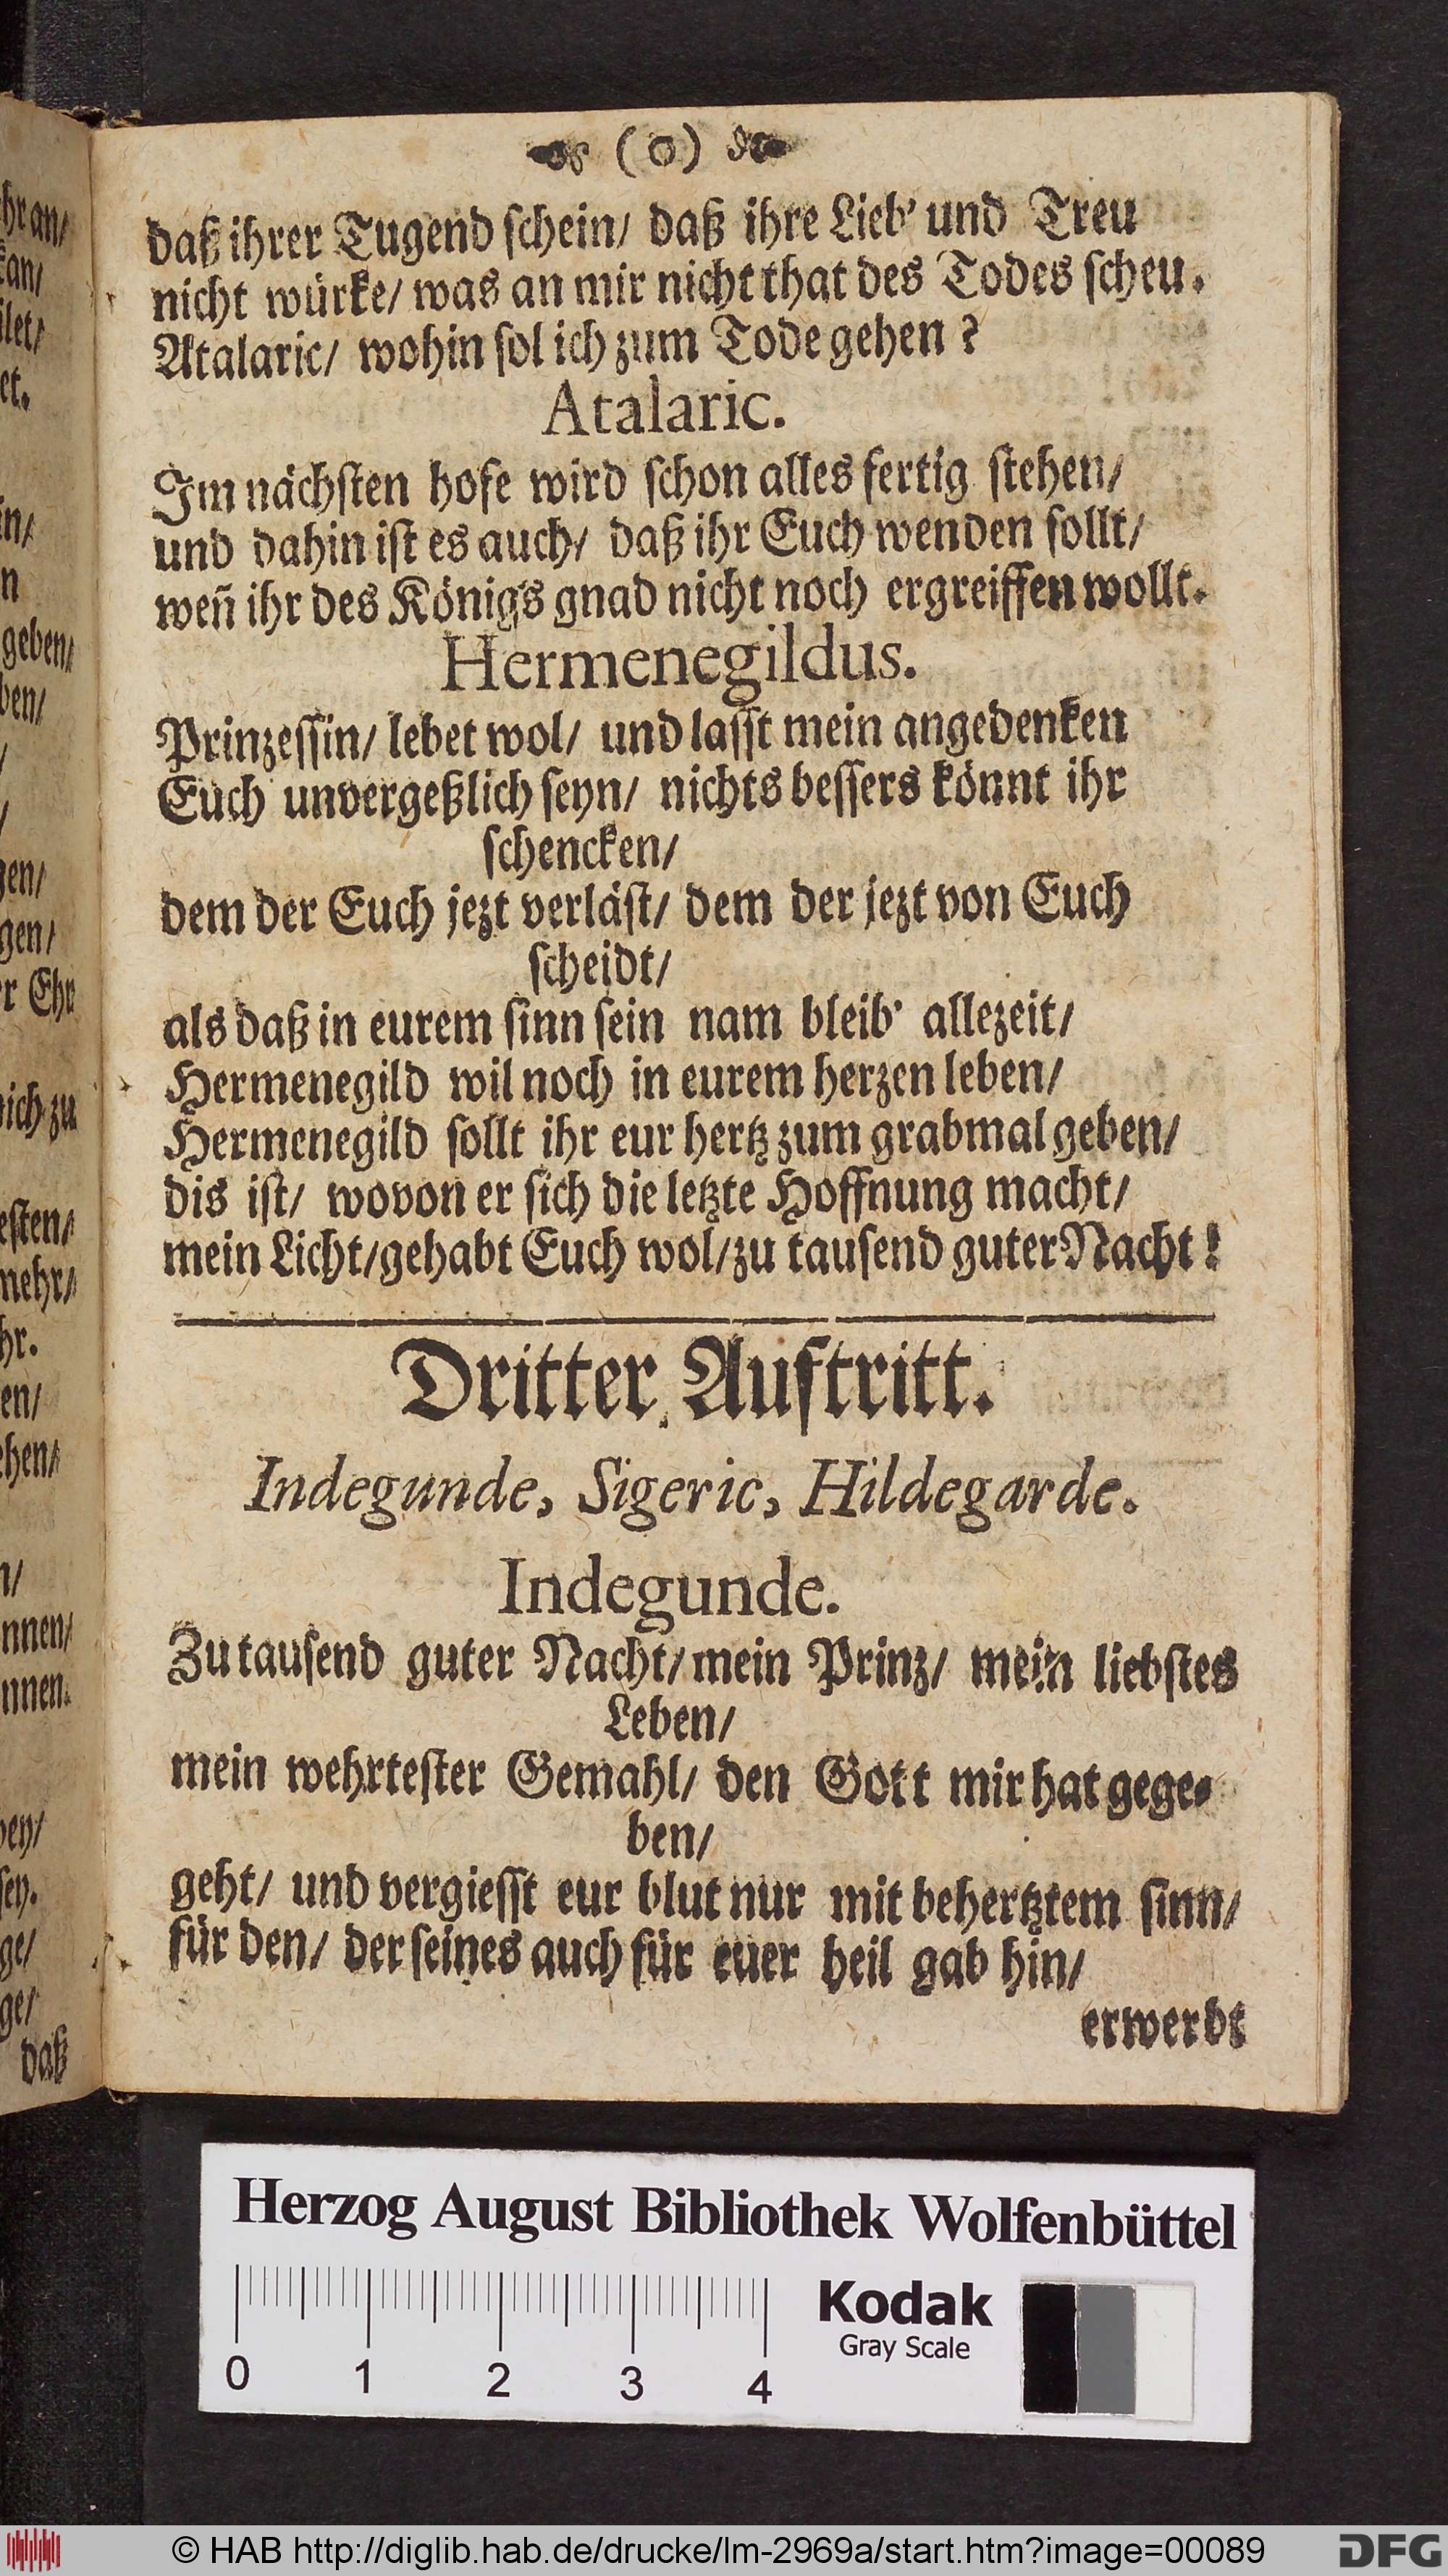 (o)
daß ihrer Tugend schein/ daß ihre Lieb' und Treu
nicht würke/ was an mir nicht that des Todes scheu.
Atalaric/ wohin sol ich zum Tode gehen?
Atalaric.
Im nächsten hofe wird schon alles fertig stehen/
und dahin ist es auch/ daß ihr Euch wenden sollt/
weñ ihr des Königs gnad nicht noch ergreiffen wollt.
Hermenegildus.
Prinzessin/ lebet wol/ und lasst mein angedenken
Euch unvergeßlich seyn/ nichts bessers könnt ihr
schencken/
dem der Euch jezt verläst/ dem der jezt von Euch
scheidt/
als daß in eurem sinn sein nam bleib' allezeit/
Hermenegild wil noch in eurem herzen leben/
Hermenegild sollt ihr eur hertz zum grabmal geben/
dis ist/ wovon er sich die letzte Hoffnung macht/
mein Licht/ gehabt Euch wol/ zu tausend guter Nacht!
Dritter Auftritt.
Indegunde, Sigeric, Hildegarde.
Indegunde.
Zu tausend guter Nacht/ mein Prinz/ mein liebstes
Leben/
mein wehrtester Gemahl/ den Gott mir hat gege-
ben/
geht/ und vergiesst eur blut nur mit behertztem sinn/
für den/ der seines auch für euer heil gab hin/
erwerbt
hr an/
kan/
let/
et.
in/
n
geben/
ben/
gen/
gen/
r Ehr
ich zu
esten/
mehr/
hr.
en/
ehen/
n/
nnen/
nnen.
bey/
sey.
ge/
ge/
daß
Herzog August Bibliothek Wolfenbüttel
0 1 2 3 4
Kodak
Gray Scale
© HAB http://diglib.hab.de/drucke/lm-2969a/start.htm?image=00089
DFG